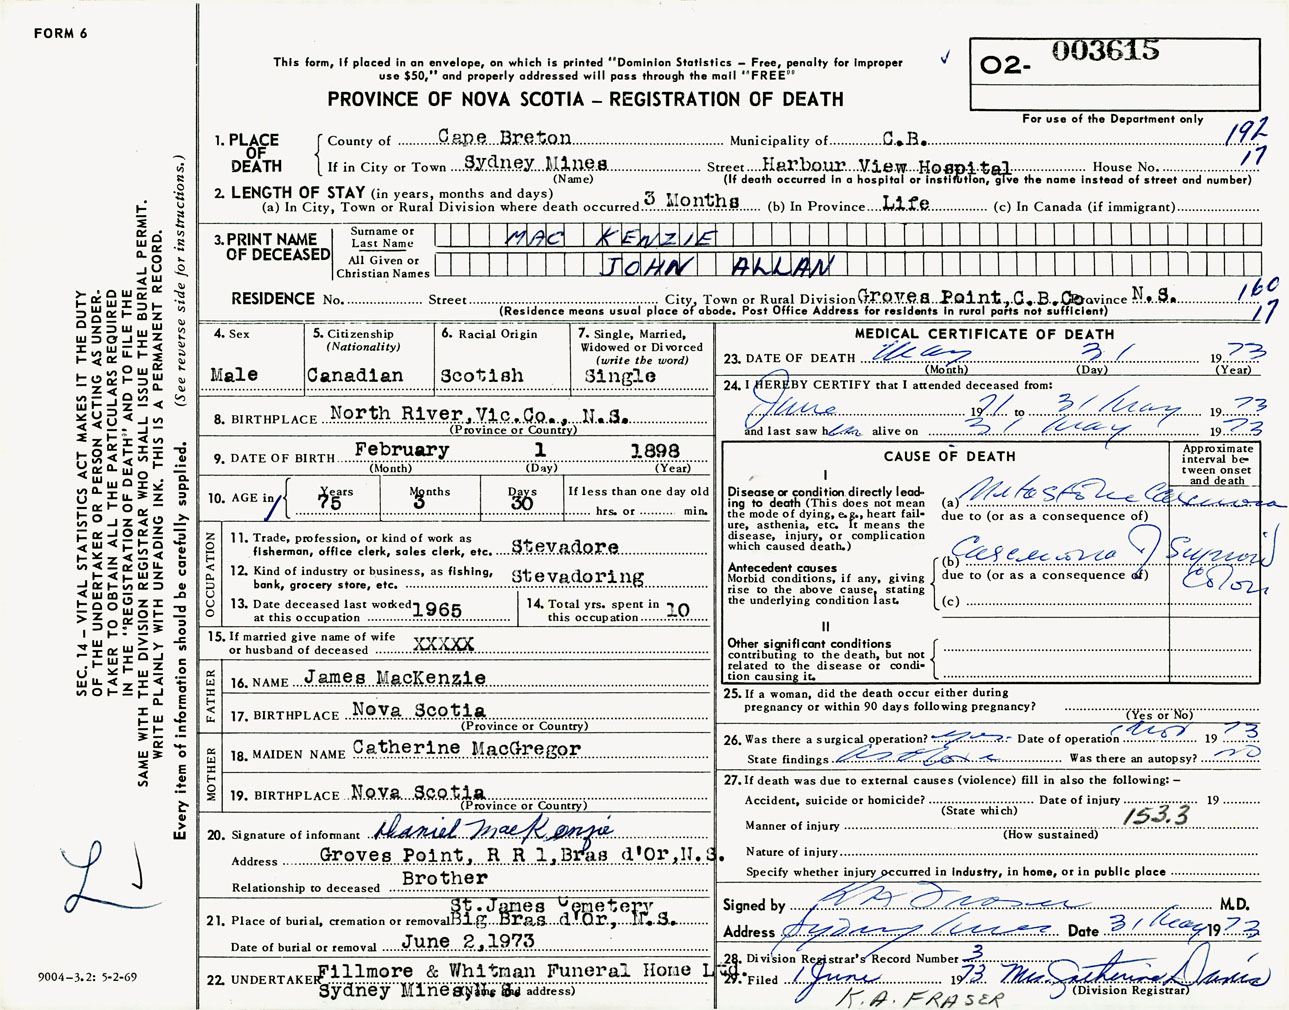 FORM 6
This form, if placed in an envelope, on which is printed "Dominion Statistics – Free, penalty for improper
use $50," and properly addressed will pass through the mail "FREE"
PROVINCE OF NOVA SCOTIA – REGISTRATION OF DEATH
O2- 003615
For use of the Department only
192
17
1. PLACE OF DEATH
County of Cape Breton Municipality of C.B.
If in City or Town Sydney Mines Street Harbour View Hospital House No.
(Name) (If death occurred in a hospital or institution, give the name instead of street and number)
2. LENGTH OF STAY (in years, months and days)
(a) In City, Town or Rural Division where death occurred 3 Months (b) In Province Life (c) In Canada (if immigrant)
3. PRINT NAME OF DECEASED
Surname or Last Name MAC KENZIE
All Given or Christian Names JOHN ALLAN
RESIDENCE No. Street City, Town or Rural Division Groves Point, C.B.Co Province N.S.
(Residence means usual place of abode. Post Office Address for residents in rural parts not sufficient)
160
17
4. Sex
Male
5. Citizenship
(Nationality)
Canadian
6. Racial Origin
Scotish
7. Single, Married,
Widowed or Divorced
(write the word)
Single
8. BIRTHPLACE North River, Vic.Co., N.S.
(Province or Country)
9. DATE OF BIRTH February 1 1898
(Month) (Day) (Year)
10. AGE in
Years Months Days If less than one day old
75 3 30 hrs. or min.
OCCUPATION
11. Trade, profession, or kind of work as
fisherman, office clerk, sales clerk, etc. Stevadore
12. Kind of industry or business, as fishing,
bank, grocery store, etc. Stevadoring
13. Date deceased last worked
at this occupation 1965
14. Total yrs. spent in
this occupation 10
15. If married give name of wife
or husband of deceased XXXXX
FATHER
16. NAME James MacKenzie
17. BIRTHPLACE Nova Scotia
(Province or Country)
MOTHER
18. MAIDEN NAME Catherine MacGregor
19. BIRTHPLACE Nova Scotia
(Province or Country)
20. Signature of informant Daniel MacKenzie
Address Groves Point, R R 1, Bras d'Or, N.S.
Relationship to deceased Brother
St.James Cemetery
21. Place of burial, cremation or removal Big Bras d'Or, N.S.
Date of burial or removal June 2,1973
22. UNDERTAKER Fillmore & Whitman Funeral Home Ltd.
Sydney Mines, N.S. (Name and address)
MEDICAL CERTIFICATE OF DEATH
23. DATE OF DEATH May 31 1973
(Month) (Day) (Year)
24. I HEREBY CERTIFY that I attended deceased from:
June 1971 to 31 May 1973
and last saw him alive on 31 May 1973
CAUSE OF DEATH
Approximate
interval be-
tween onset
and death
I
Disease or condition directly lead-
ing to death (This does not mean
the mode of dying, e.g., heart fail-
ure, asthenia, etc. It means the
disease, injury, or complication
which caused death.)
(a) Carcinoma
due to (or as a consequence of)
Antecedent causes
Morbid conditions, if any, giving
rise to the above cause, stating
the underlying condition last.
(b) Carcinoma of Sigmoid
Colon
due to (or as a consequence of)
(c)
II
Other significant conditions
contributing to the death, but not
related to the disease or condi-
tion causing it.
25. If a woman, did the death occur either during
pregnancy or within 90 days following pregnancy?
(Yes or No)
26. Was there a surgical operation? yes Date of operation 1973
State findings as above Was there an autopsy? no
27. If death was due to external causes (violence) fill in also the following: –
Accident, suicide or homicide? Date of injury 19
(State which)
153.3
Manner of injury
(How sustained)
Nature of injury
Specify whether injury occurred in industry, in home, or in public place
Signed by K A Fraser M.D.
Address Sydney Mines Date 31 May 1973
28. Division Registrar's Record Number 3
29. Filed 1 June 1973 Mrs. Catherine Davis
(Division Registrar)
K.A. FRASER
SEC. 14 – VITAL STATISTICS ACT MAKES IT THE DUTY
OF THE UNDERTAKER OR PERSON ACTING AS UNDER-
TAKER TO OBTAIN ALL THE PARTICULARS REQUIRED
IN THE "REGISTRATION OF DEATH" AND TO FILE THE
SAME WITH THE DIVISION REGISTRAR WHO SHALL ISSUE THE BURIAL PERMIT.
WRITE PLAINLY WITH UNFADING INK. THIS IS A PERMANENT RECORD.
Every item of information should be carefully supplied. (See reverse side for instructions.)
9004-3.2: 5-2-69